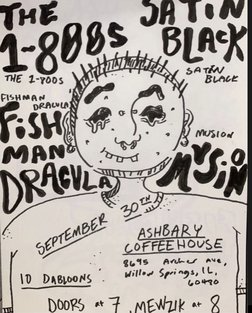 THE
1-800s
THE 1-800S
SATiN
BLACK
SATEN
BLACK
FISHMAN
DRACULA
FiSH
MAN
DRACULA
MUSION
MUSiON
SEPTEMBER 30TH
ASHBARY
COFFEEHOUSE
8695 Archer Ave,
Willow Springs, IL,
60480
10 DABLOONS
DOORS at 7, MEWZIK at 8